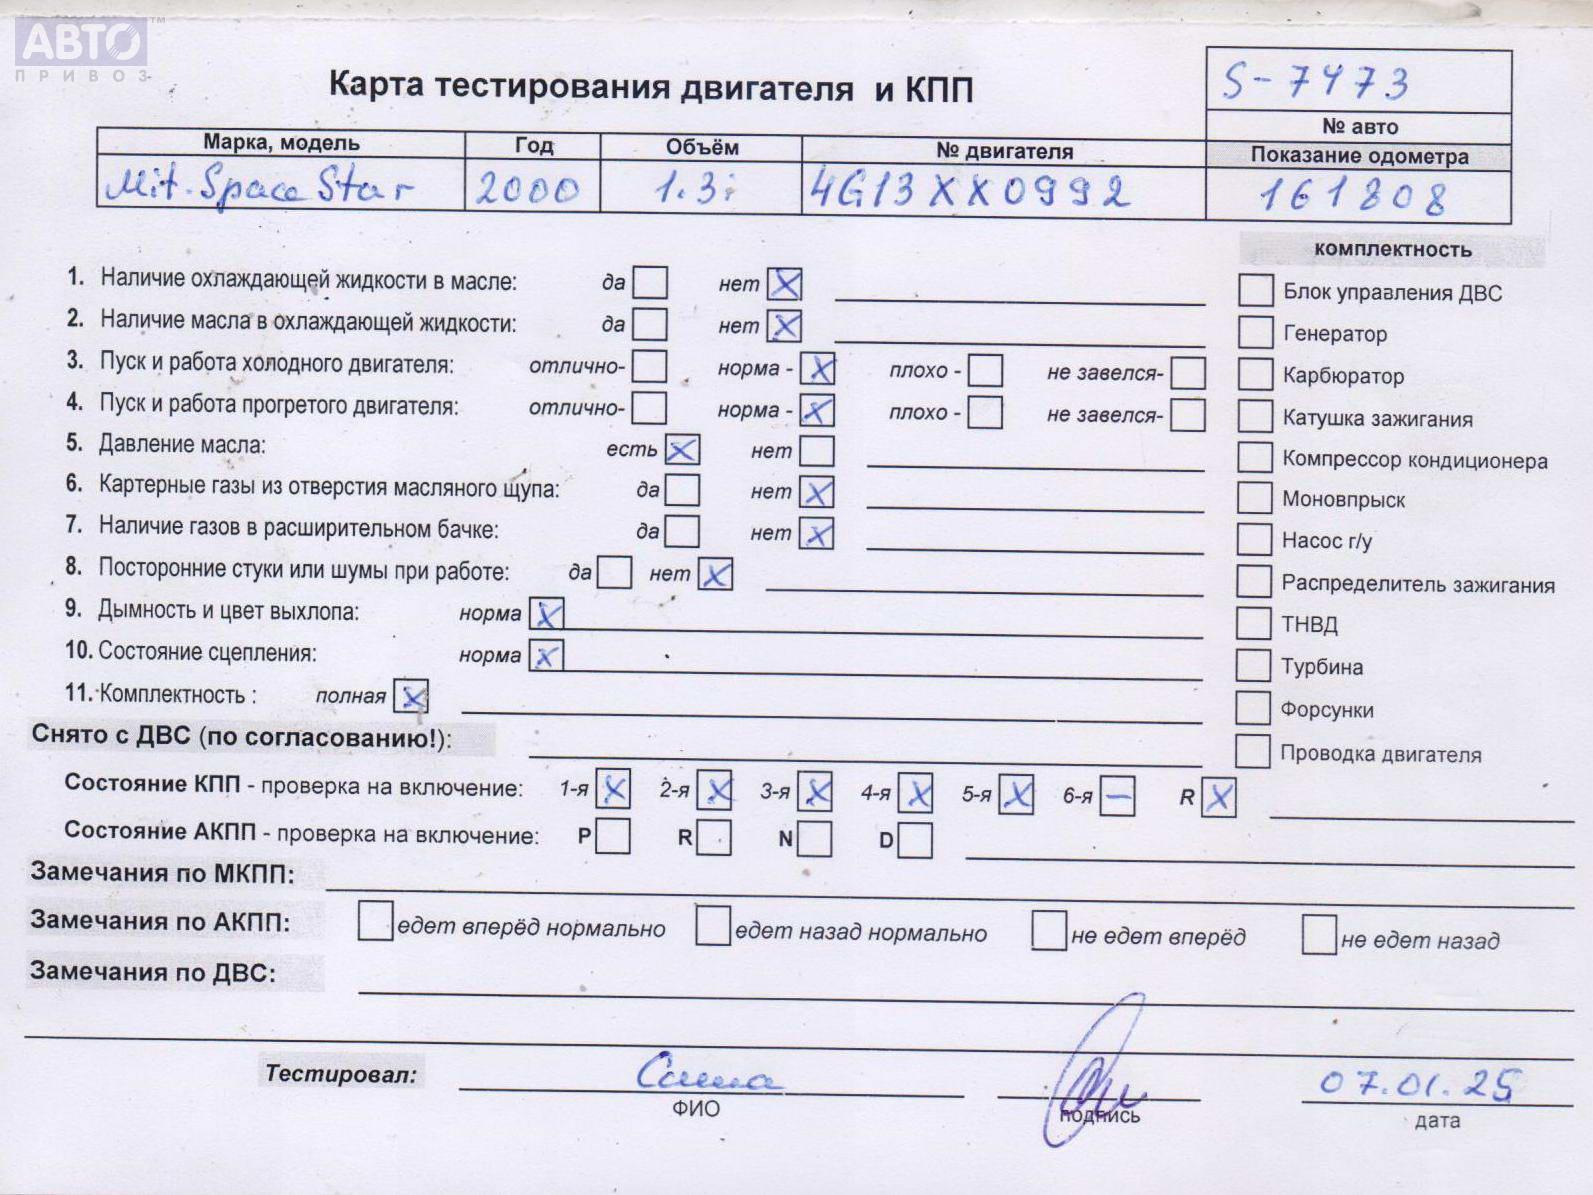 АВТО™
ПРИВОЗ
Карта тестирования двигателя и КПП
S-7473
№ авто
Марка, модель Год Объём № двигателя Показание одометра
Mit. Space Star 2000 1.3i 4G13XX0992 161808
комплектность
1. Наличие охлаждающей жидкости в масле: да нет X
Блок управления ДВС
2. Наличие масла в охлаждающей жидкости: да нет X
Генератор
3. Пуск и работа холодного двигателя: отлично- норма - X плохо - не завелся-
Карбюратор
4. Пуск и работа прогретого двигателя: отлично- норма - X плохо - не завелся-
Катушка зажигания
5. Давление масла: есть X нет
Компрессор кондиционера
6. Картерные газы из отверстия масляного щупа: да нет X
Моновпрыск
7. Наличие газов в расширительном бачке: да нет X
Насос г/у
8. Посторонние стуки или шумы при работе: да нет X
Распределитель зажигания
9. Дымность и цвет выхлопа: норма X
ТНВД
10. Состояние сцепления: норма X
Турбина
11. Комплектность : полная X
Форсунки
Снято с ДВС (по согласованию!):
Проводка двигателя
Состояние КПП - проверка на включение: 1-я X 2-я X 3-я X 4-я X 5-я X 6-я – R X
Состояние АКПП - проверка на включение: P R N D
Замечания по МКПП:
Замечания по АКПП: едет вперёд нормально едет назад нормально не едет вперёд не едет назад
Замечания по ДВС:
Тестировал: Саша 07.01.25
ФИО подпись дата